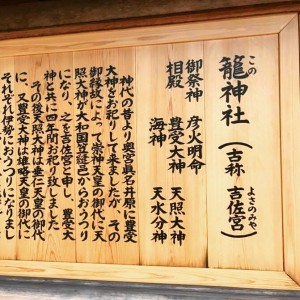 籠神社(古称 吉佐宮)
この よさのみや
御祭神 彦火明命
相殿 豊受大神 天照大神
海神 天水分神
神代の昔より奥宮眞名井原に豊受
大神をお祀りして来ましたが、その
御縁故によって崇神天皇の御代に天
照大神が大和国笠縫邑からおうつり
になり、之を吉佐宮と申し、豊受大
神と共に四年間お祀り致しました
その後天照大神は垂仁天皇の御代
に、又豊受大神は雄略天皇の御代に
それぞれ伊勢におうつりになりまし